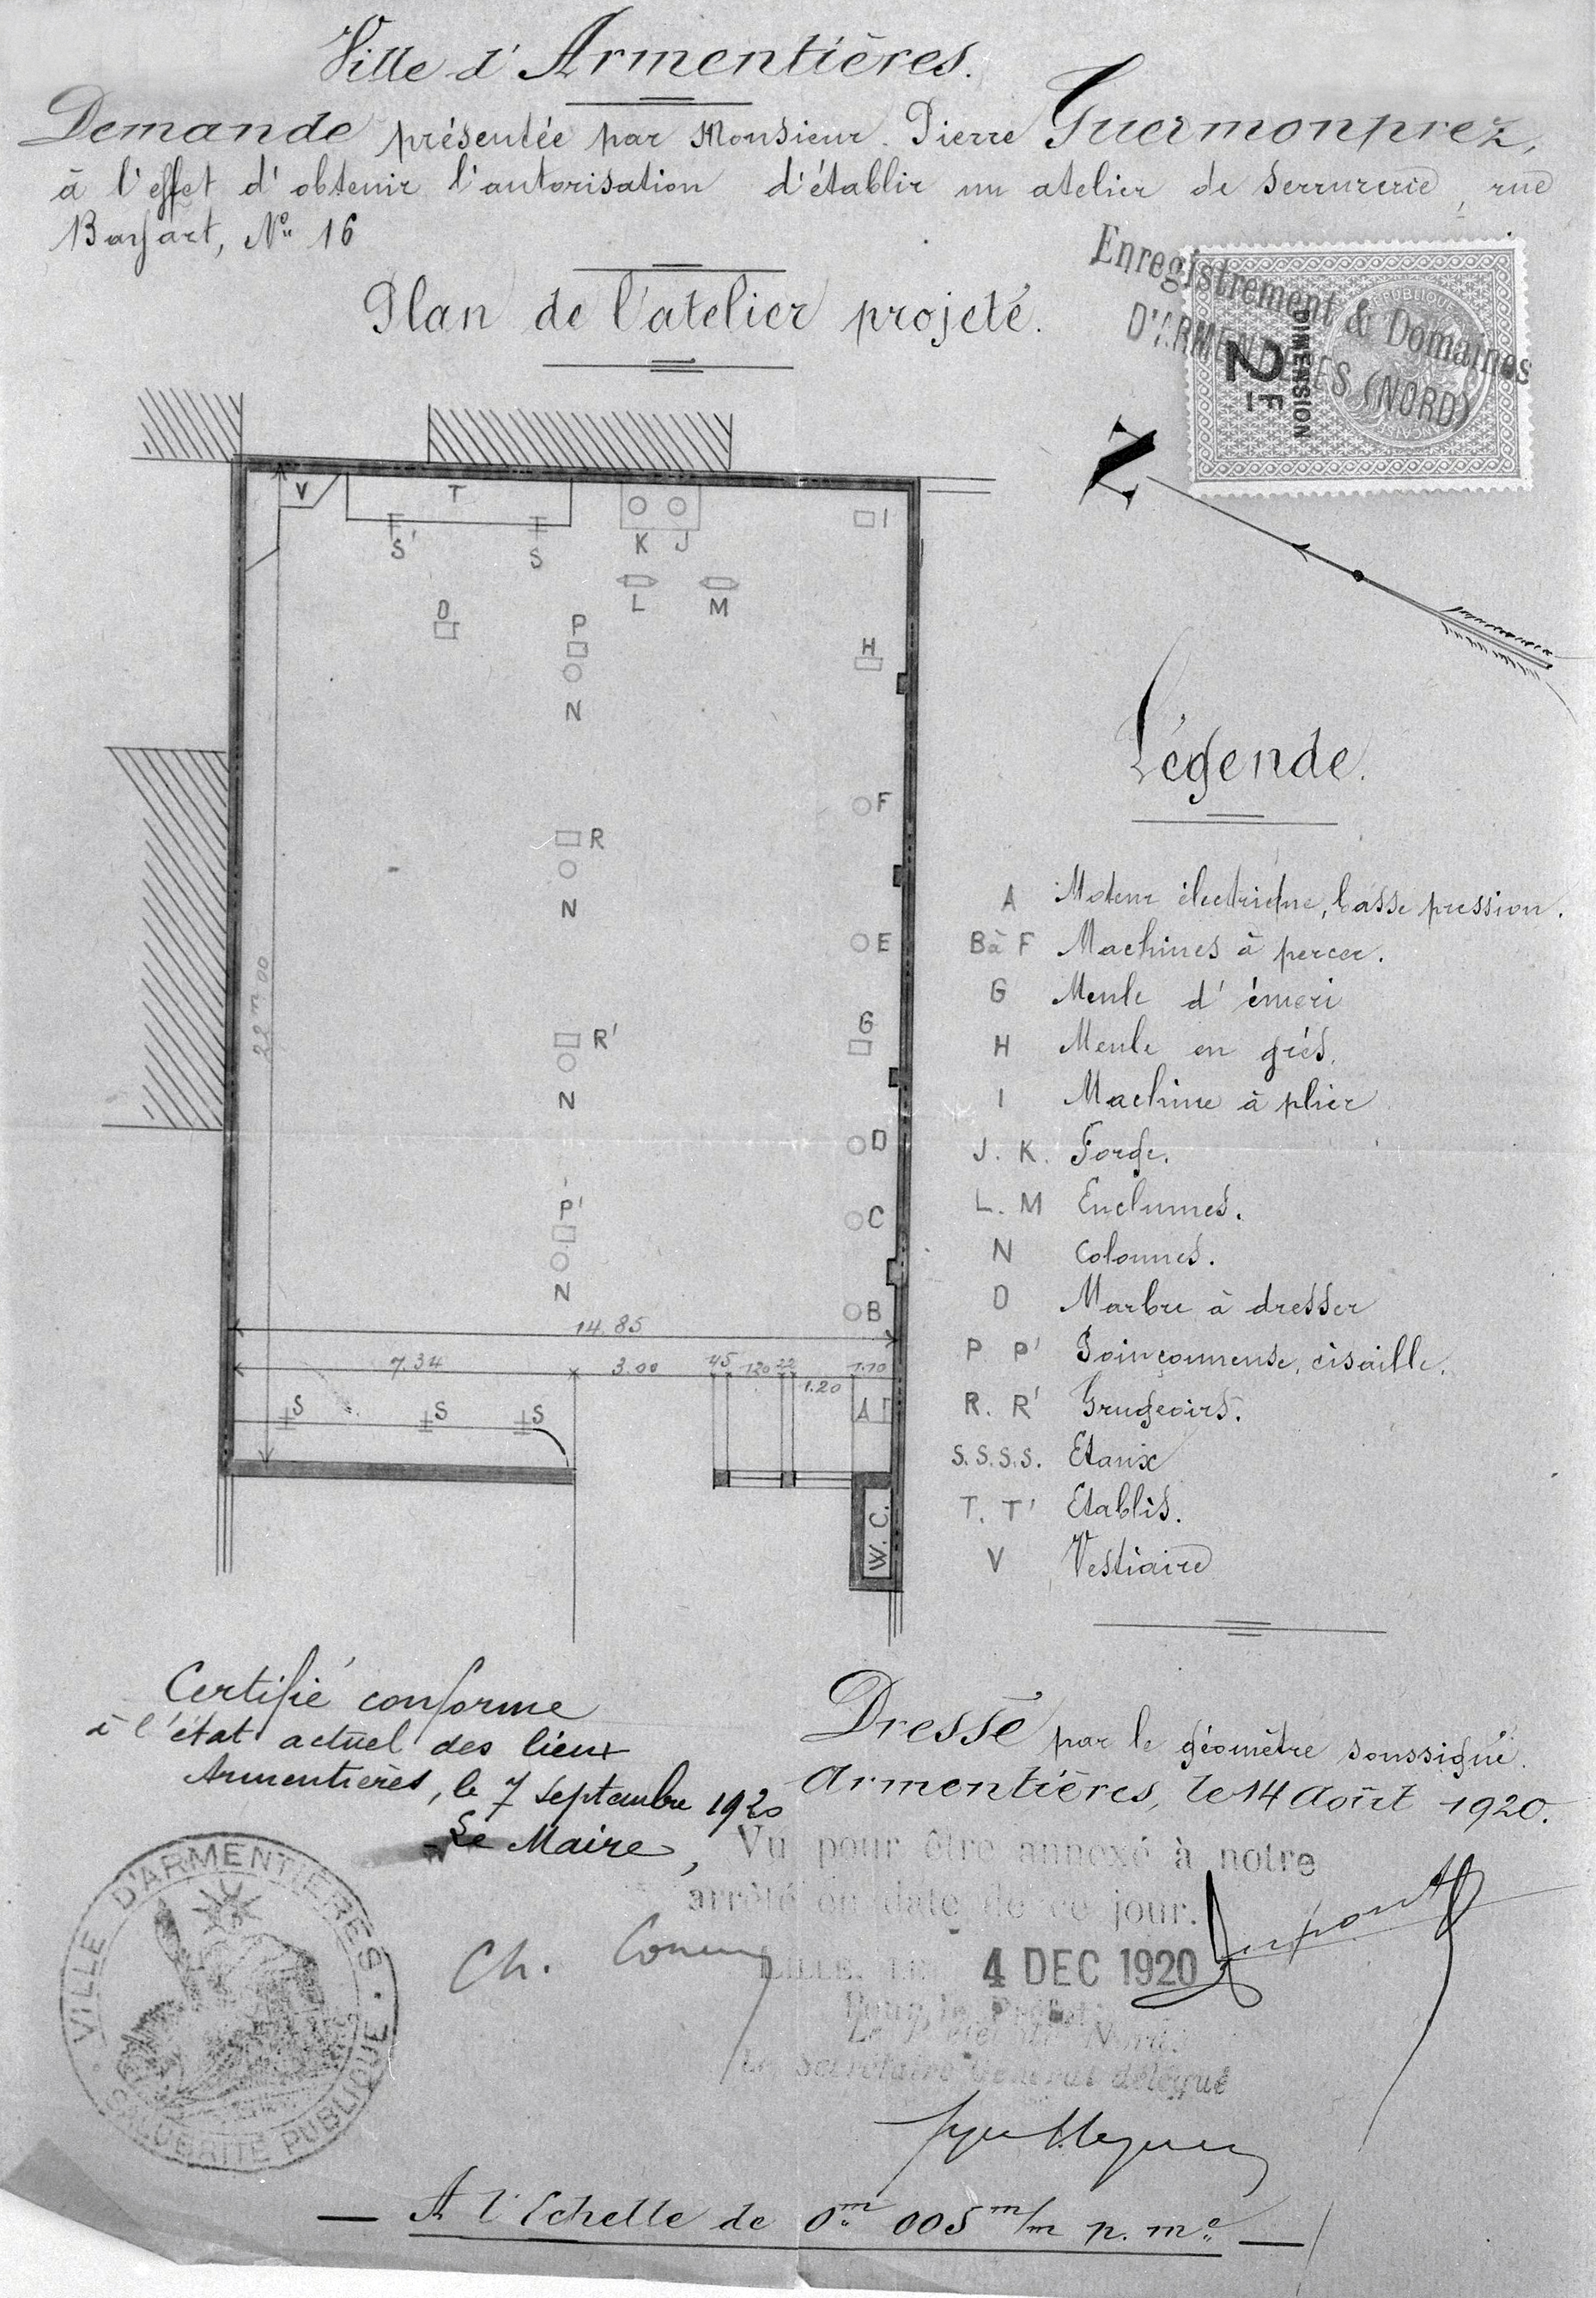 Ville d'Armentières.
Demande présentée par Monsieur Pierre Guermonprez,
à l'effet d'obtenir l'autorisation d'établir un atelier de Serrurerie, rue
Bayart, N° 16
Plan de l'atelier projeté.
Enregistrement & Domaines
D'ARMENTIÈRES (NORD)
DIMENSION
2F
N
V
T
S'
S
K
J
I
L
M
O
P
H
N
F
R
N
E
R'
G
N
D
P'
C
N
B
22m00
14.85
7.34
3.00
45
120
22
1.20
1.10
S
S
S
A
W.C.
Légende.
A Moteur électrique, basse pression.
B à F Machines à percer.
G Meule d'émeri
H Meule en grés.
I Machine à plier
J. K. Forge.
L. M Enclumes.
N Colonnes.
O Marbre à dresser
P P' Poinçonneuse, cisaille.
R. R' Grugeoirs.
S.S.S.S. Etaux
T. T' Etablis.
V Vestiaire
Certifié conforme
à l'état actuel des lieux
Armentières, le 7 Septembre 1920
Le Maire,
Ch. Conem
VILLE D'ARMENTIÈRES
SALUBRITÉ PUBLIQUE
Dressé par le géomètre soussigné.
Armentières, le 14 Août 1920.
Vu pour être annexé à notre
arrêté en date de ce jour.
LILLE, LE 4 DEC 1920
Pour le Préfet
Le Secrétaire Général délégué
A l'Echelle de 0m 005 m/m p. me